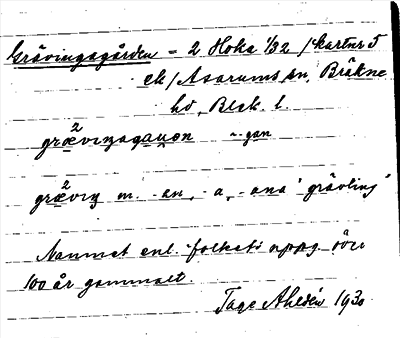 Grävingagården - 2 Hoka 1/32 /kartnr 5
ek/ Asarums sn, Bräkne
hd, Blek. l.
²grævıŋagaɳən ~-gan
²grævıŋ m. -an, -a, -ana 'grävling'
Namnet enl. folkets uppg. över
100 år gammalt.
Tage Ahldén 1930